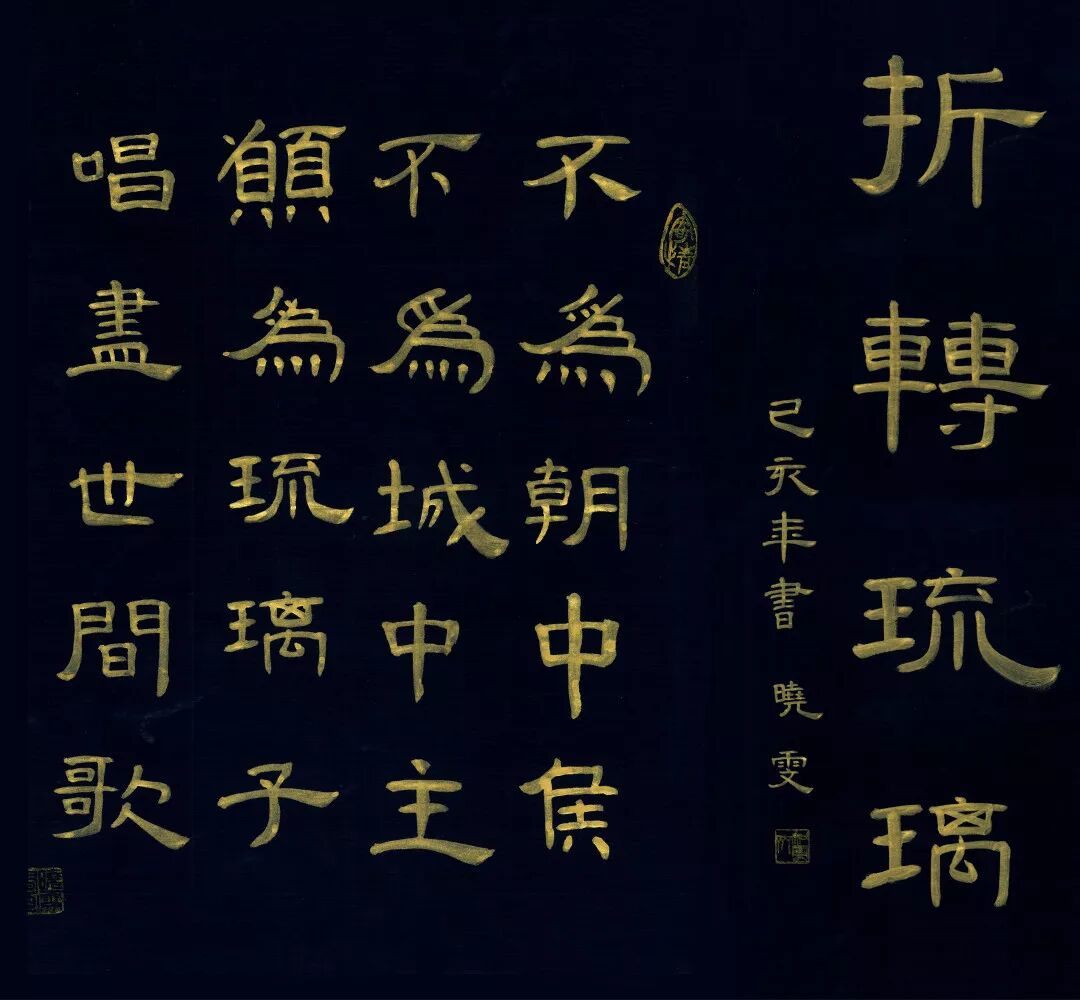 折轉琉璃
己亥年書 曉雯
不為朝中侯
不為城中主
願為琉璃子
唱盡世間歌